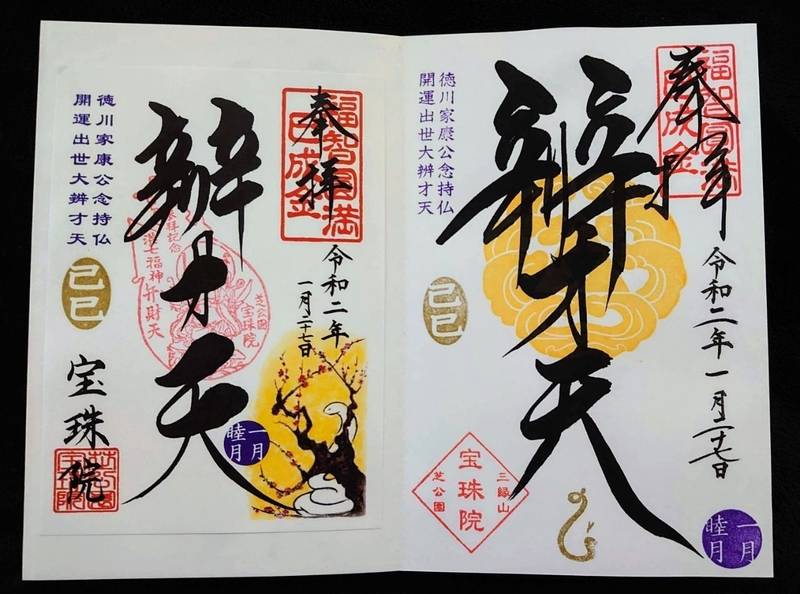 奉拝
福智円満
巳成金
令和二年
一月二十七日
辨才天
徳川家康公念持仏
開運出世大辨才天
参拝記念
港七福神弁財天
芝公園
宝珠院
己巳
一月
睦月
宝珠院
奉拝
福智円満
巳成金
令和二年一月二十七日
辨才天
徳川家康公念持仏
開運出世大辨才天
己巳
三縁山
宝珠院
芝公園
一月
睦月